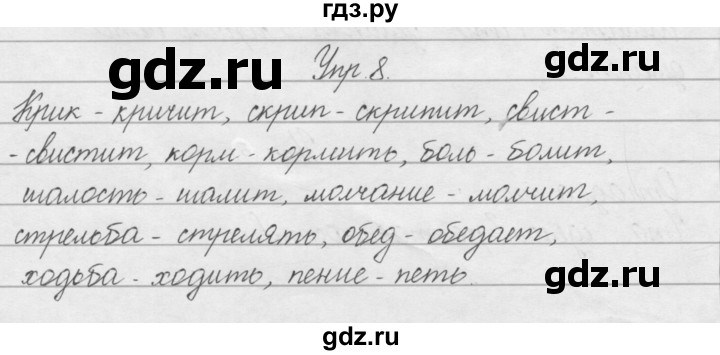 гдз.ру
Упр. 8.
gdz.ru
gdz.ru
Крик - кричит, скрип - скрипит, свист -
- свистит, корм - кормить, боль - болит,
шалость - шалит, молчание - молчит,
стрельба - стрелять, обед - обедает,
ходьба - ходить, пение - петь.
gdz.ru
gdz.ru
gdz.ru